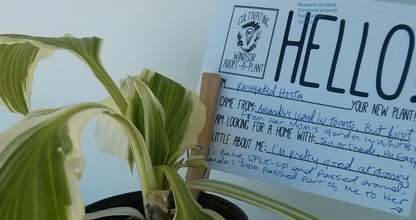 Research projects
Curatorial projects
CULTIVATING
WINDSOR
ADOPT-A-PLANT
HELLO!
Variegated Hosta
YOUR NEW PLANT!
CAME FROM: Amanda's yard in Toronto, But first
From Her Mom's Garden in
AM LOOKING FOR A HOME WITH: Sun or shade,
LITTLE ABOUT ME: I'm pretty good at growing
, Being SPLIT-up and Passed around
anda's Mom Passed Part of Me To Her